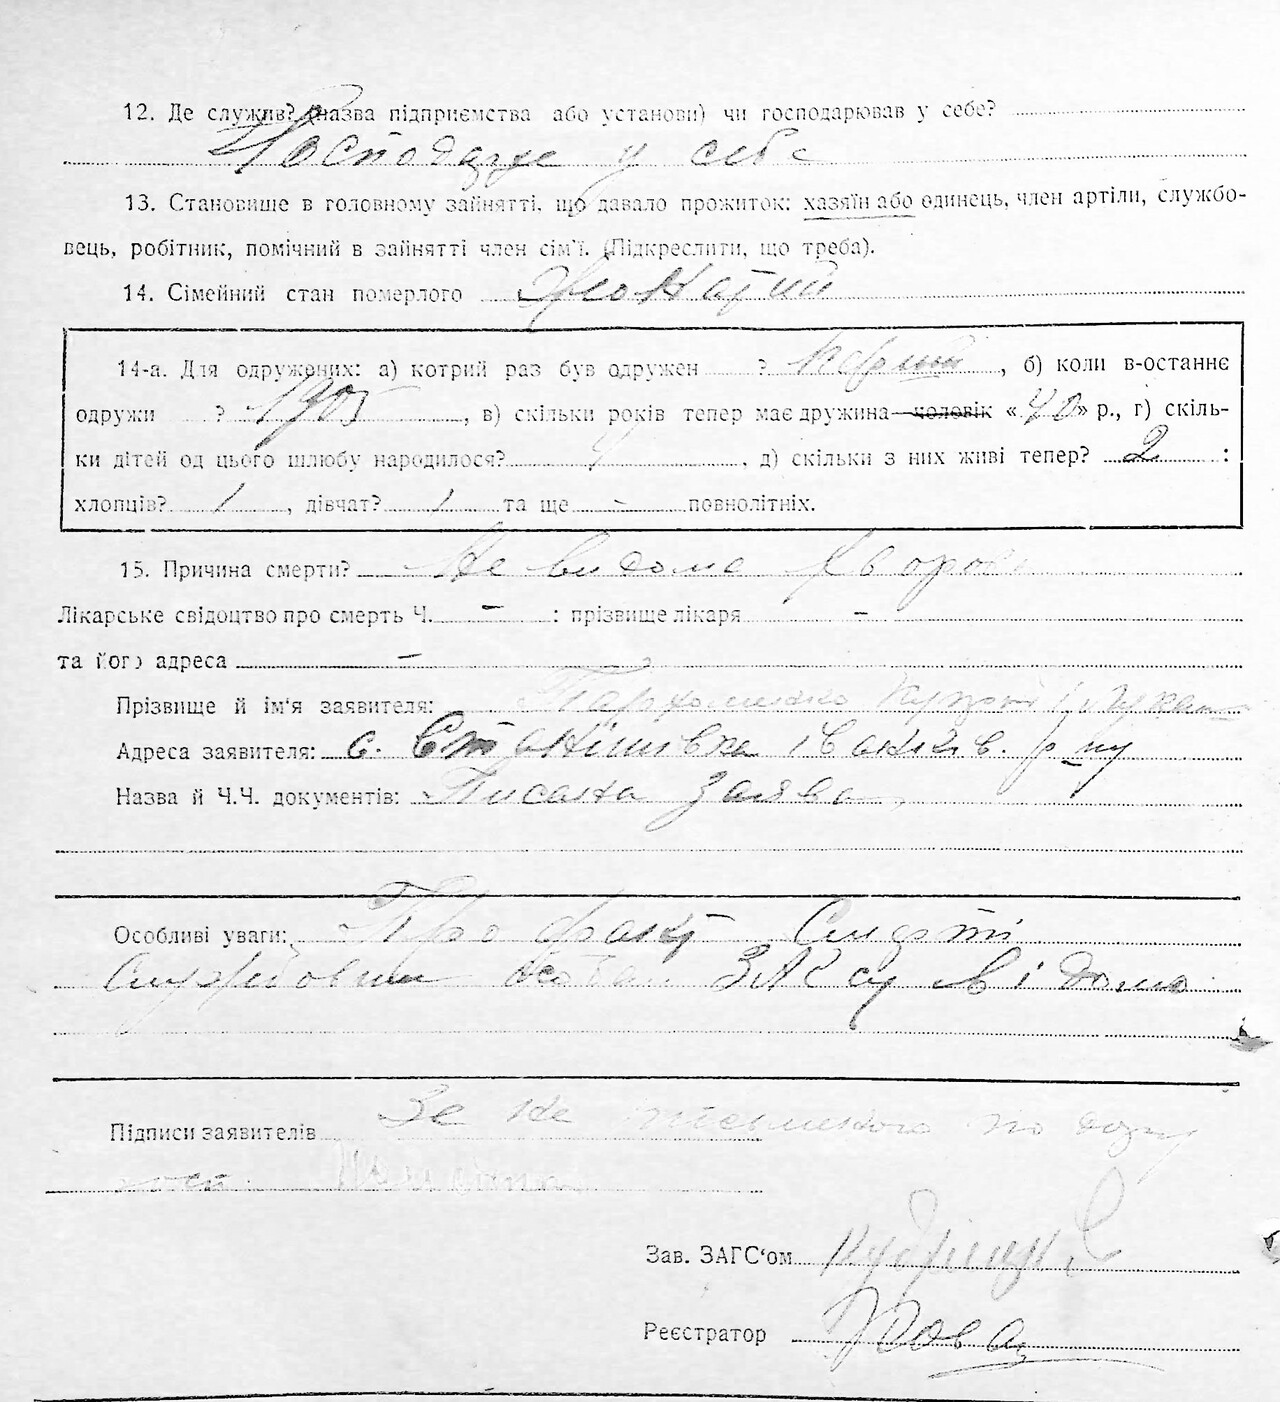 12. Де служив? (назва підприємства або установи) чи господарював у себе?
Господарює у себе
13. Становище в головному зайнятті, що давало прожиток: хазяїн або одинець, член артіли, службо-
вець, робітник, помічний в зайнятті член сім'ї. (Підкреслити, що треба).
14. Сімейний стан померлого Жонатий
14-а. Для одружених: а) котрий раз був одружен ? перший, б) коли в-останнє
одружи ? 1905, в) скільки років тепер має дружина—чоловік «40» р., г) скіль-
ки дітей од цього шлюбу народилося? 4, д) скільки з них живі тепер? 2 :
хлопців? 1, дівчат? 1 та ще - повнолітніх.
15. Причина смерти? Не видома хвороба
Лікарське свідоцтво про смерть Ч. - : прізвище лікаря -
та його адреса -
Прізвище й ім'я заявителя: Пархоменко
Адреса заявителя: с. Станішівка Іванків. р-ну
Назва й Ч.Ч. документів: Писана заява
Особливі уваги: Про факт Смерті
Службовим особам ЗАГСу відомо
Підписи заявителів За не письменого по
Зав. ЗАГС'ом
Реєстратор